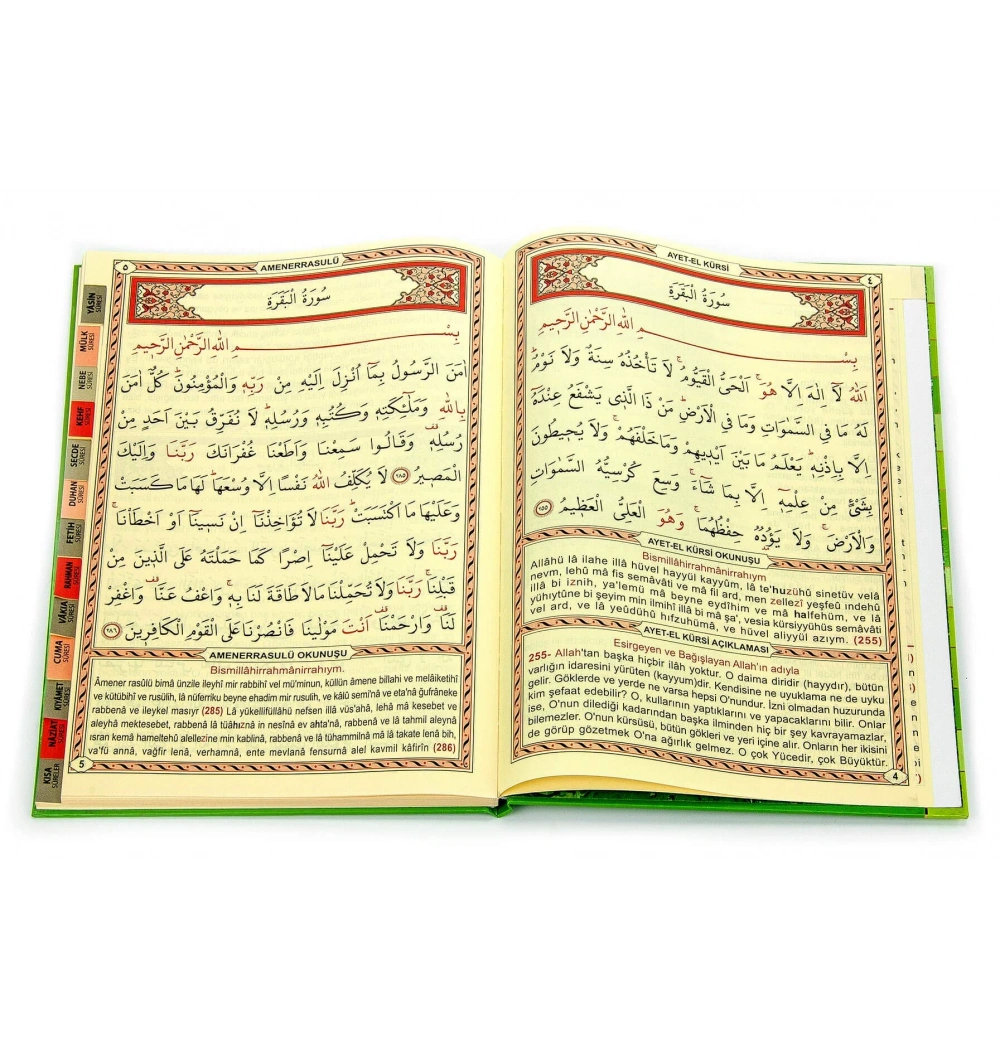 AYET-EL KÜRSİ
٤
سُورَةُ الْبَقَرَةِ
بِسْــــمِ اللهِ الرَّحْمٰنِ الرَّحٖيمِ
اَللهُ لَٓا اِلٰهَ اِلَّا هُوَۚ اَلْحَيُّ الْقَيُّومُۚ لَا تَأْخُذُهُ سِنَةٌ وَلَا نَوْمٌؕ
لَهُ مَا فِي السَّمٰوَاتِ وَمَا فِي الْاَرْضِؕ مَنْ ذَا الَّذٖي يَشْفَعُ عِنْدَهُٓ
اِلَّا بِاِذْنِهٖؕ يَعْلَمُ مَا بَيْنَ اَيْدٖيهِمْ وَمَا خَلْفَهُمْۚ وَلَا يُحٖيطُونَ
بِشَيْءٍ مِنْ عِلْمِهٖٓ اِلَّا بِمَا شَٓاءَۚ وَسِعَ كُرْسِيُّهُ السَّمٰوَاتِ
وَالْاَرْضَۚ وَلَا يَؤُ۫دُهُ حِفْظُهُمَاۚ وَهُوَ الْعَلِيُّ الْعَظٖيمُ ﴿٢٥٥﴾
AYET-EL KÜRSİ OKUNUŞU
Bismillâhirrahmânirrahıym
Allâhü lâ ilahe illâ hüvel hayyül kayyûm, lâ te'huzühû sinetüv velâ
nevm, lehû mâ fis semâvâti ve mâ fil ard, men zellezî yeşfeû ındehû
illâ bi iznih, ya'lemü mâ beyne eydîhim ve mâ halfehüm, ve lâ
yühıytûne bi şeyim min ilmihî illâ bi mâ şa', vesia kürsiyyühüs semâvâti
vel ard, ve lâ yeûdühû hıfzuhümâ, ve hüvel aliyyül azıym. (255)
AYET-EL KÜRSİ AÇIKLAMASI
Esirgeyen ve Bağışlayan Allah'ın adıyla
255- Allah'tan başka hiçbir ilâh yoktur. O daima diridir (hayydır), bütün
varlığın idaresini yürüten (kayyum)dir. Kendisine ne uyuklama ne de uyku
gelir. Göklerde ve yerde ne varsa hepsi O'nundur. İzni olmadan huzurunda
kim şefaat edebilir? O, kullarının yaptıklarını ve yapacaklarını bilir. Onlar
ise, O'nun dilediği kadarından başka ilminden hiç bir şey kavrayamazlar,
bilemezler. O'nun kürsüsü, bütün gökleri ve yeri içine alır. Onların her ikisini
de görüp gözetmek O'na ağırlık gelmez. O çok Yücedir, çok Büyüktür.
4
٥
AMENERRASULÜ
سُورَةُ الْبَقَرَةِ
بِسْــــمِ اللهِ الرَّحْمٰنِ الرَّحٖيمِ
اٰمَنَ الرَّسُولُ بِمَٓا اُنْزِلَ اِلَيْهِ مِنْ رَبِّهٖ وَالْمُؤْمِنُونَؕ كُلٌّ اٰمَنَ
بِاللهِ وَمَلٰٓئِكَتِهٖ وَكُتُبِهٖ وَرُسُلِهٖؕ لَا نُفَرِّقُ بَيْنَ اَحَدٍ مِنْ
رُسُلِهٖ وَقَالُوا سَمِعْنَا وَاَطَعْنَا غُفْرَانَكَ رَبَّنَا وَاِلَيْكَ
الْمَصٖيرُ ﴿٢٨٥﴾ لَا يُكَلِّفُ اللهُ نَفْسًا اِلَّا وُسْعَهَاؕ لَهَا مَا كَسَبَتْ
وَعَلَيْهَا مَا اكْتَسَبَتْؕ رَبَّنَا لَا تُؤَاخِذْنَٓا اِنْ نَسٖينَٓا اَوْ اَخْطَأْنَاۚ
رَبَّنَا وَلَا تَحْمِلْ عَلَيْنَٓا اِصْرًا كَمَا حَمَلْتَهُ عَلَى الَّذٖينَ مِنْ
قَبْلِنَاۚ رَبَّنَا وَلَا تُحَمِّلْنَا مَا لَا طَاقَةَ لَنَا بِهٖۚ وَاعْفُ عَنَّا وَاغْفِرْ
لَنَا وَارْحَمْنَا اَنْتَ مَوْلٰينَا فَانْصُرْنَا عَلَى الْقَوْمِ الْكَافِرٖينَ ﴿٢٨٦﴾
AMENERRASULÜ OKUNUŞU
Bismillâhirrahmânirrahıym.
Âmener rasûlü bimâ ünzile ileyhî mir rabbihî vel mü'minun, küllün âmene billahi ve melâiketihî
ve kütübihî ve rusülih, lâ nüferriku beyne ehadim mir rusulih, ve kâlû semi'nâ ve eta'nâ ğufrâneke
rabbenâ ve ileykel masıyr (285) Lâ yükellifüllâhü nefsen illâ vüs'ahâ, lehâ mâ kesebet ve
aleyhâ mektesebet, rabbenâ lâ tüâhıznâ in nesînâ ev ahta'nâ, rabbenâ ve lâ tahmil aleynâ
ısran kemâ hameltehû alellezîne min kablinâ, rabbenâ ve lâ tühammilnâ mâ lâ takate lenâ bih,
va'fü annâ, vağfir lenâ, verhamnâ, ente mevlanâ fensurnâ alel kavmil kâfirîn (286)
5
YÂSİN
SÛRESİ
MÜLK
SÛRESİ
NEBE
SÛRESİ
KEHF
SÛRESİ
SECDE
SÛRESİ
DUHAN
SÛRESİ
FETİH
SÛRESİ
RAHMAN
SÛRESİ
VÂKIA
SÛRESİ
CUMA
SÛRESİ
KIYÂMET
SÛRESİ
NÂZİAT
SÛRESİ
KISA
SÛRELER